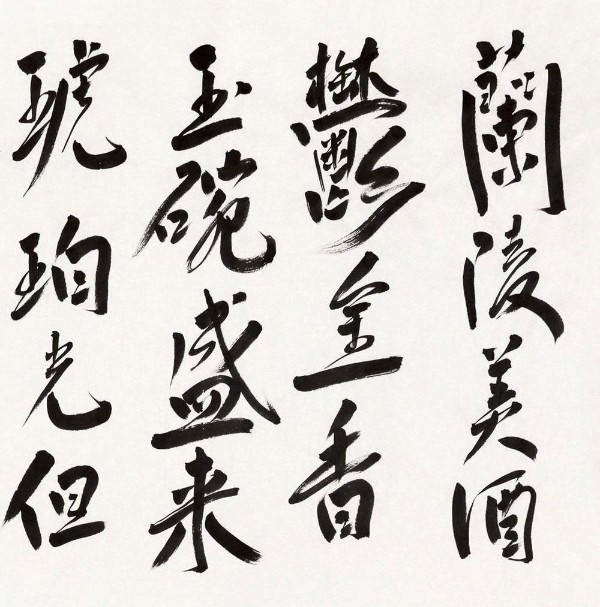 蘭陵美酒
鬱金香
玉碗盛来
琥珀光但